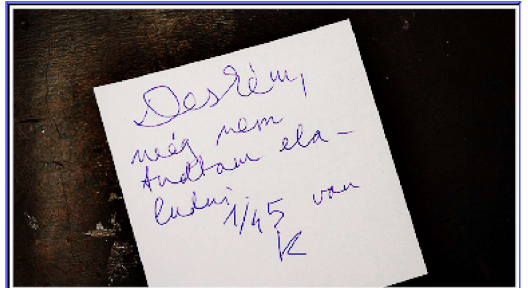 Desrém,
még nem
tudtam ela-
ludni. 1/45 van
K